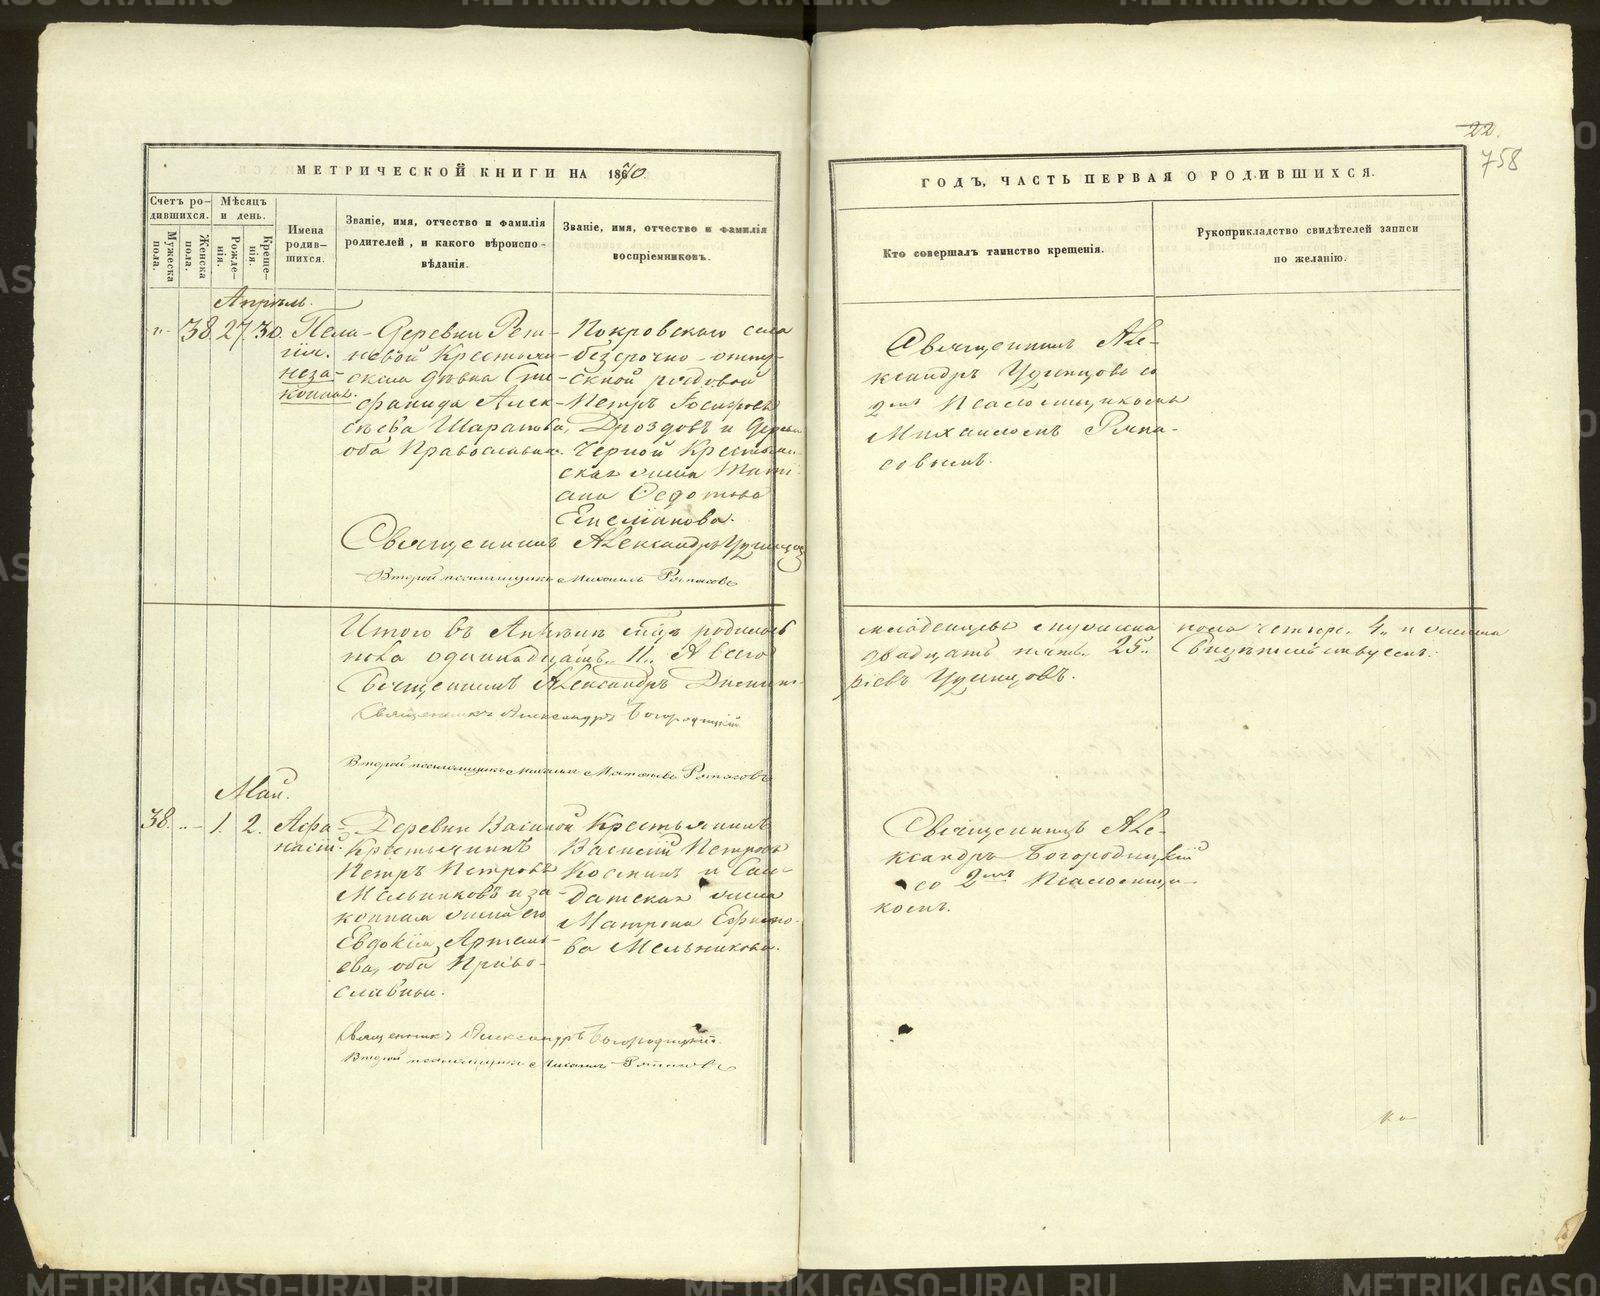 22.
758
МЕТРИЧЕСКОЙ КНИГИ НА 1870.
ГОДЪ, ЧАСТЬ ПЕРВАЯ О РОДИВШИХСЯ.
Счетъ ро-
дившихся.
Мужеска
пола.
Женска
пола.
Мѣсяцъ
и день.
Рожде-
нія.
Креще-
нія.
Имена
родив-
шихся.
Званіе, имя, отчество и фамилія
родителей, и какого вѣроиспо-
вѣданія.
Званіе, имя, отчество и фамилія
воспріемниковъ.
Кто совершалъ таинство крещенія.
Рукоприкладство свидѣтелей записи
по желанію.
Апрѣль.
38. 27. 30.
Пела-
гія.
неза-
конная.
Деревни Рет-
невой Крестьян-
ская дѣвка Сте-
фанида Алек-
сѣева Шарапова,
оба Православные.
Покровскаго села
безсрочно-отпу-
скной рядовой
Петръ Іосифовъ
Дроздовъ и Деревни
Черной Крестьян-
ская жена Тати-
ана Ѳедотова
Емельянова.
Священникъ Александръ Удинцовъ
Второй псаломщикъ Михаилъ Ряпасовъ
Священникъ Але-
ксандръ Удинцовъ со
2мъ Псаломщикомъ
Михаиломъ Ряпа-
совымъ.
Итого въ Апрѣлѣ мцѣ родилось
младенцевъ мужеска пола четыре. 4. и женска
пола одиннадцать. 11. А всего
двадцать пять. 25. Свидѣтельствуемъ:
Священникъ Александръ Дмит-
ріевъ Удинцовъ.
Священникъ Александръ Богородицкій
Второй псаломщикъ Михаилъ Матвѣевъ Ряпасовъ
Май.
38. 1. 2.
Аѳа-
насій.
Деревни
Крестьянинъ
Петръ Петровъ
Мельниковъ и за-
конная жена его
Евдокія Артемь-
ева, оба Право-
славные.
Крестьянинъ
Василій Петровъ
Косминъ и Сол-
датская жена
Матрена Ефимо-
ва Мельникова.
Священникъ Александръ Богородицкій.
Второй псаломщикъ Михаилъ Ряпасовъ
Священникъ Але-
ксандръ Богородицкій
со 2мъ Псаломщи-
комъ.
METRIKI.GASO-URAL.RU